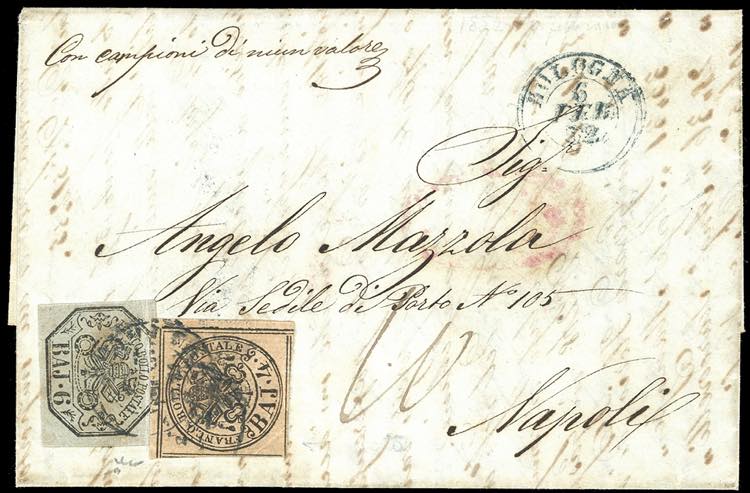 Con campioni di niun valore
BOLOGNA
6
FEB
52
Sig.r
Angelo Mazzola
Via Sedile di Porto No 105
Napoli
BAJ. 6
FRANCO BOLLO POSTALE
BAJ. 4
FRANCO BOLLO POSTALE